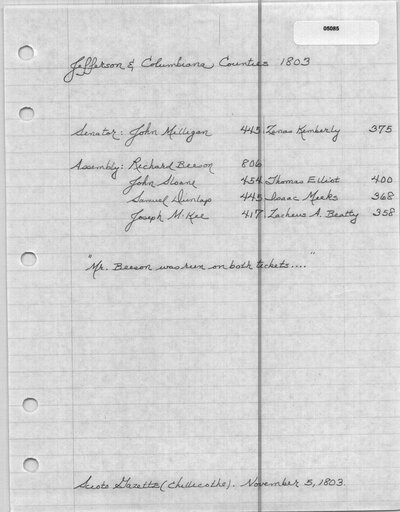 05085
Jefferson & Columbiana Counties 1803
Senator: John Milligan 445 Zenas Kimberly 375
Assembly: Richard Beeson 806
John Sloane 454 Thomas Elliot 400
Samuel Dunlap 445 Isaac Meeks 368
Joseph McKee 417 Zacheus A. Beatty 358
"Mr. Beeson was run on both tickets...."
Scioto Gazette (Chillicothe). November 5, 1803.